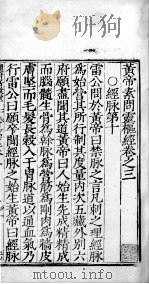 黃帝素問靈樞經卷之三
○經脉第十
雷公問於黃帝曰禁脉之言凡刺之理經脉
為始營其所行制其度量內次五藏外別六
府願盡聞其道黃帝曰人始生先成精精成
而腦髓生骨為幹脉為營筋為剛肉為牆皮
膚堅而毛髮長穀入于胃脉道以通血氣乃
行雷公曰願卒聞經脉之始生黃帝曰經脉
mtoou.info
mtoou.info